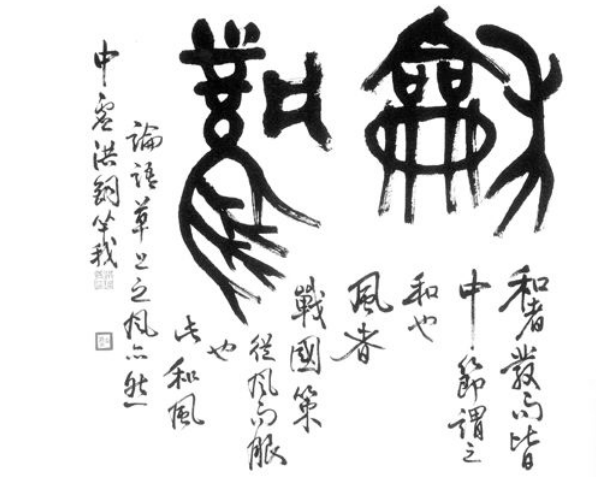 龢風
和者發而皆
中節謂之
和也
風者
戰國策
從風而服
也
此和風
論語草上之風亦然
中 洪